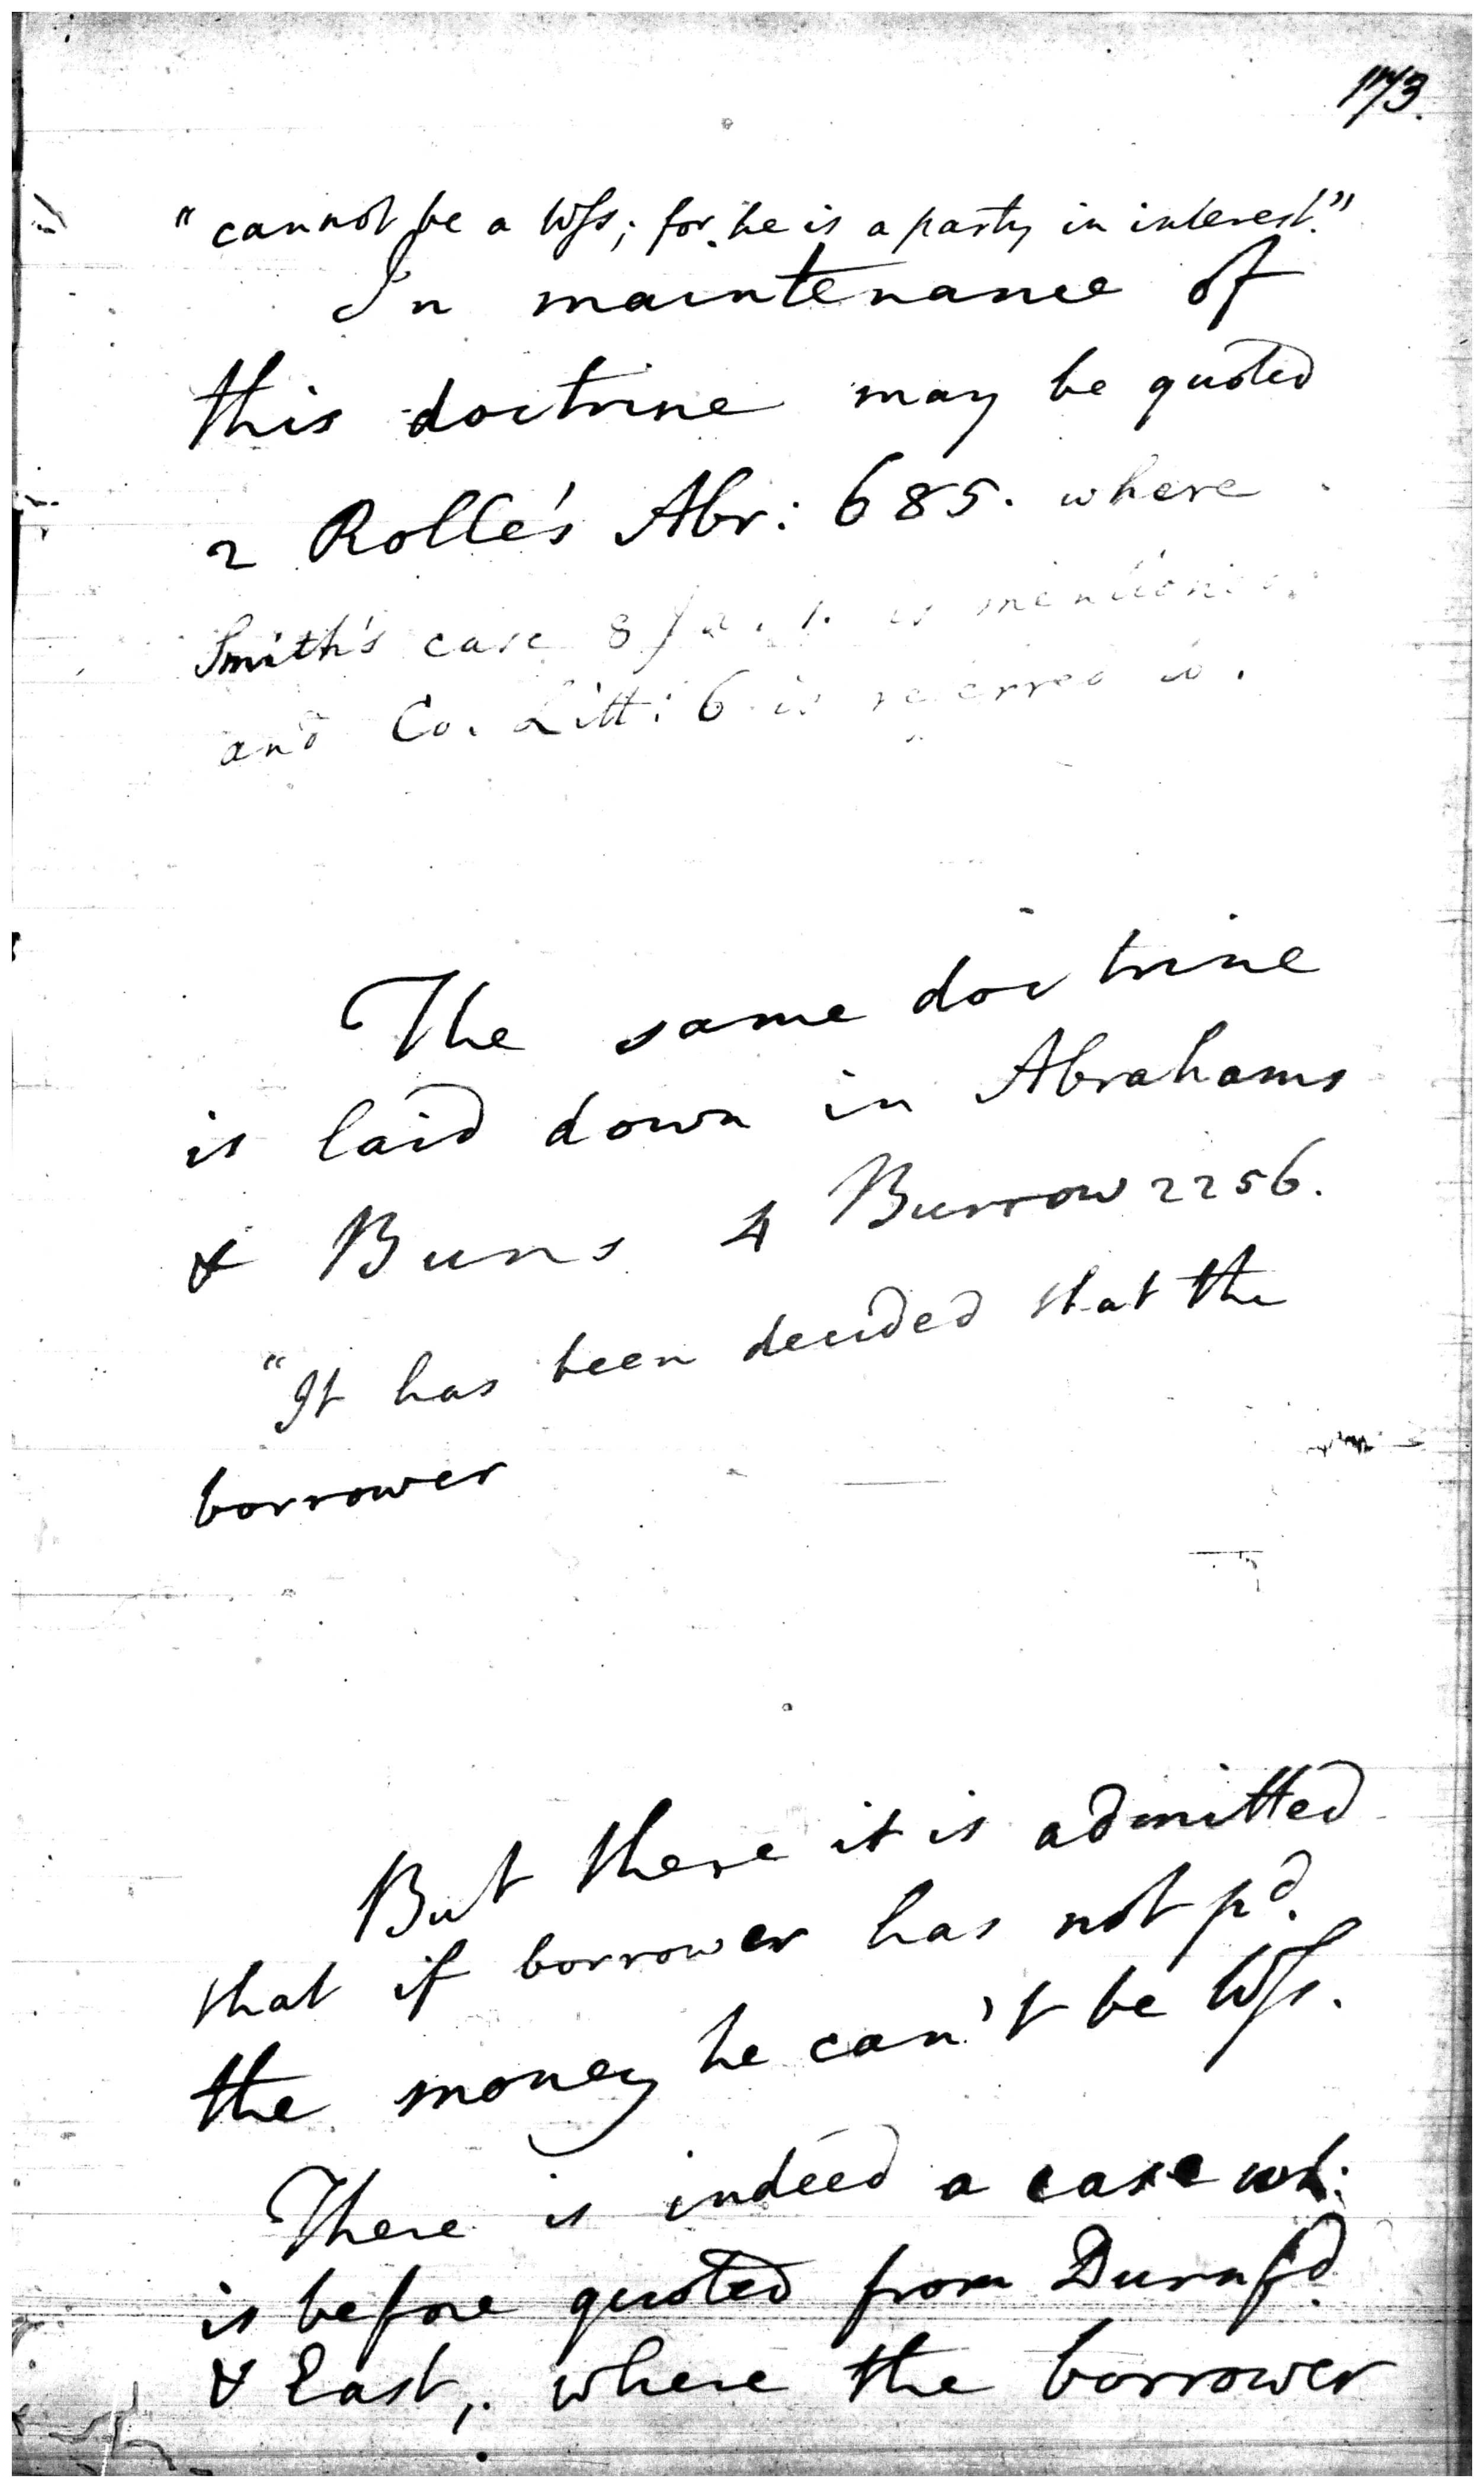 173.
"cannot be a Wss; for he is a party in interest."
In maintenance of
this doctrine may be quoted
2 Rolle's Abr: 685. where
Smith's case 8 is mentioned
and Co. Litt: 6 is referred to.
The same doctrine
is laid down in Abrahams
& Buns 4 Burrow 2256.
"It has been decided that the
borrower
But there it is admitted
that if borrower has not pd.
the money he can't be Wss.
There is indeed a case wh:
is before quoted from Durnfd.
& East, where the borrower